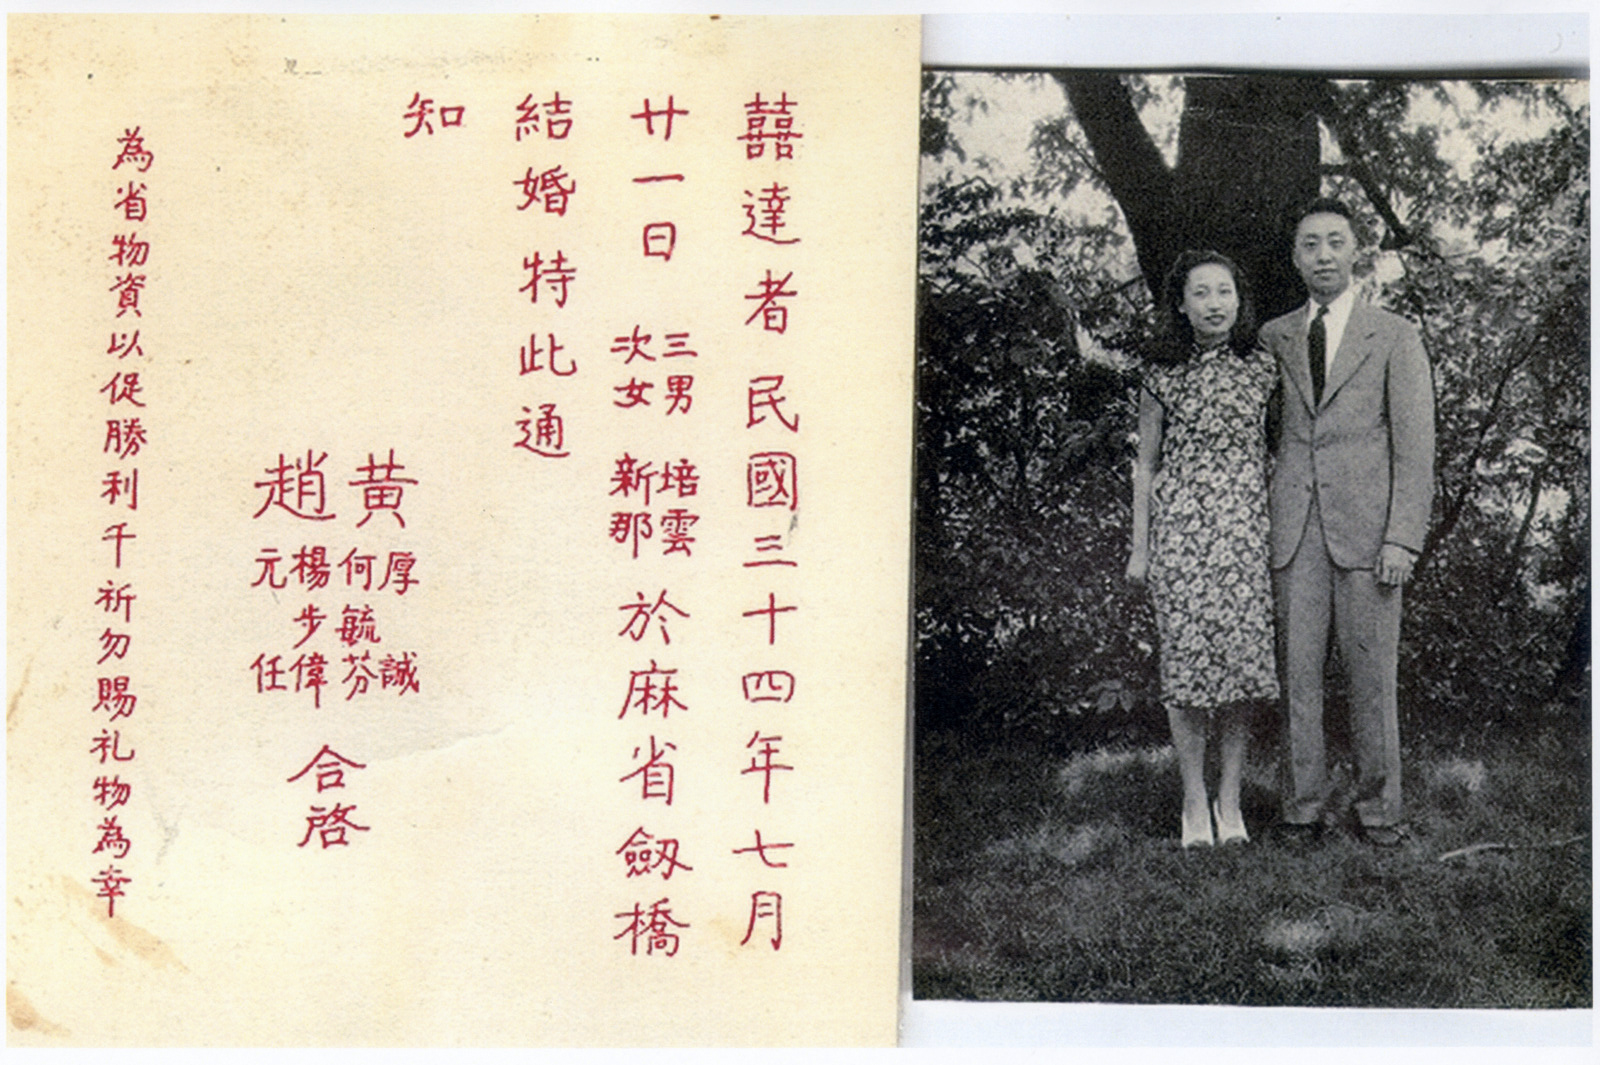 囍達者民國三十四年七月
廿一日 三男 培雲 次女 新那 於麻省劒橋
結婚特此通
知
黄 厚誠 何毓芬
趙 楊步偉 元任
合啓
為省物資以促勝利千祈勿賜礼物為幸